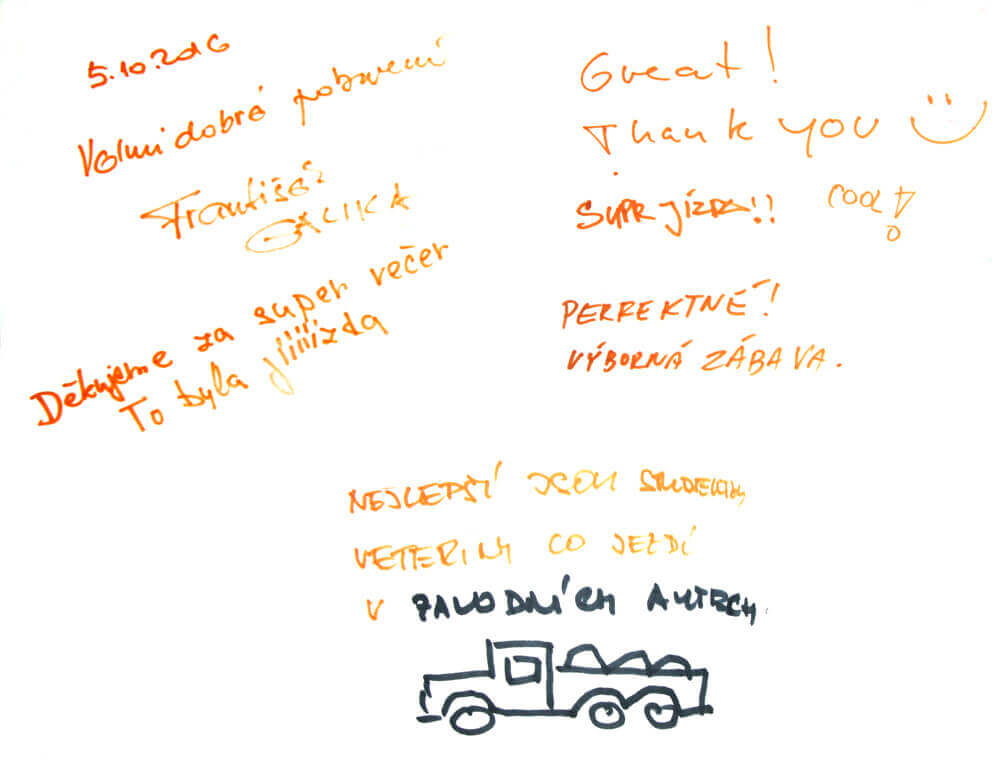 5.10.2016
Velmi dobré pobavení
František
GALIKA
Děkujeme za super večer
To byla jiiiízda
Great!
Thank you
SUPR JÍZDA!!
COOL!
PERFEKTNÉ!
VÝBORNÁ ZÁBAVA.
NEJLEPŠÍ JSOU
VETERINY CO JEZDÍ
V ZÁVODNÍCH AUTECH